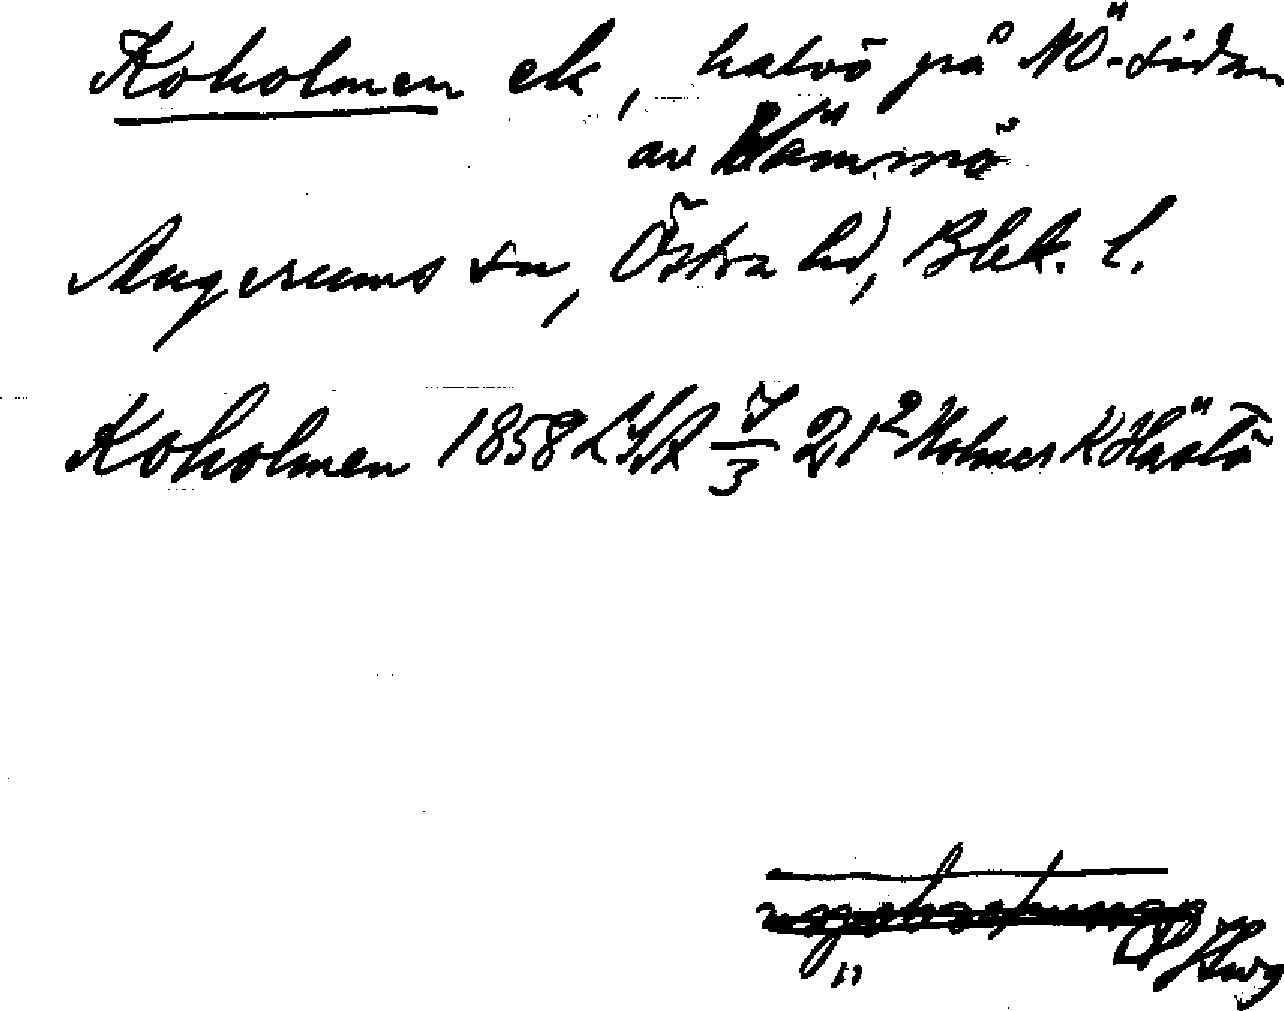 Koholmen ek, halvö på NÖ-sidan
av Hämmö
Augerums sn, Östra hd, Blek. l.
Koholmen 1858 LSA 7/3 21² Holmer K Hästö